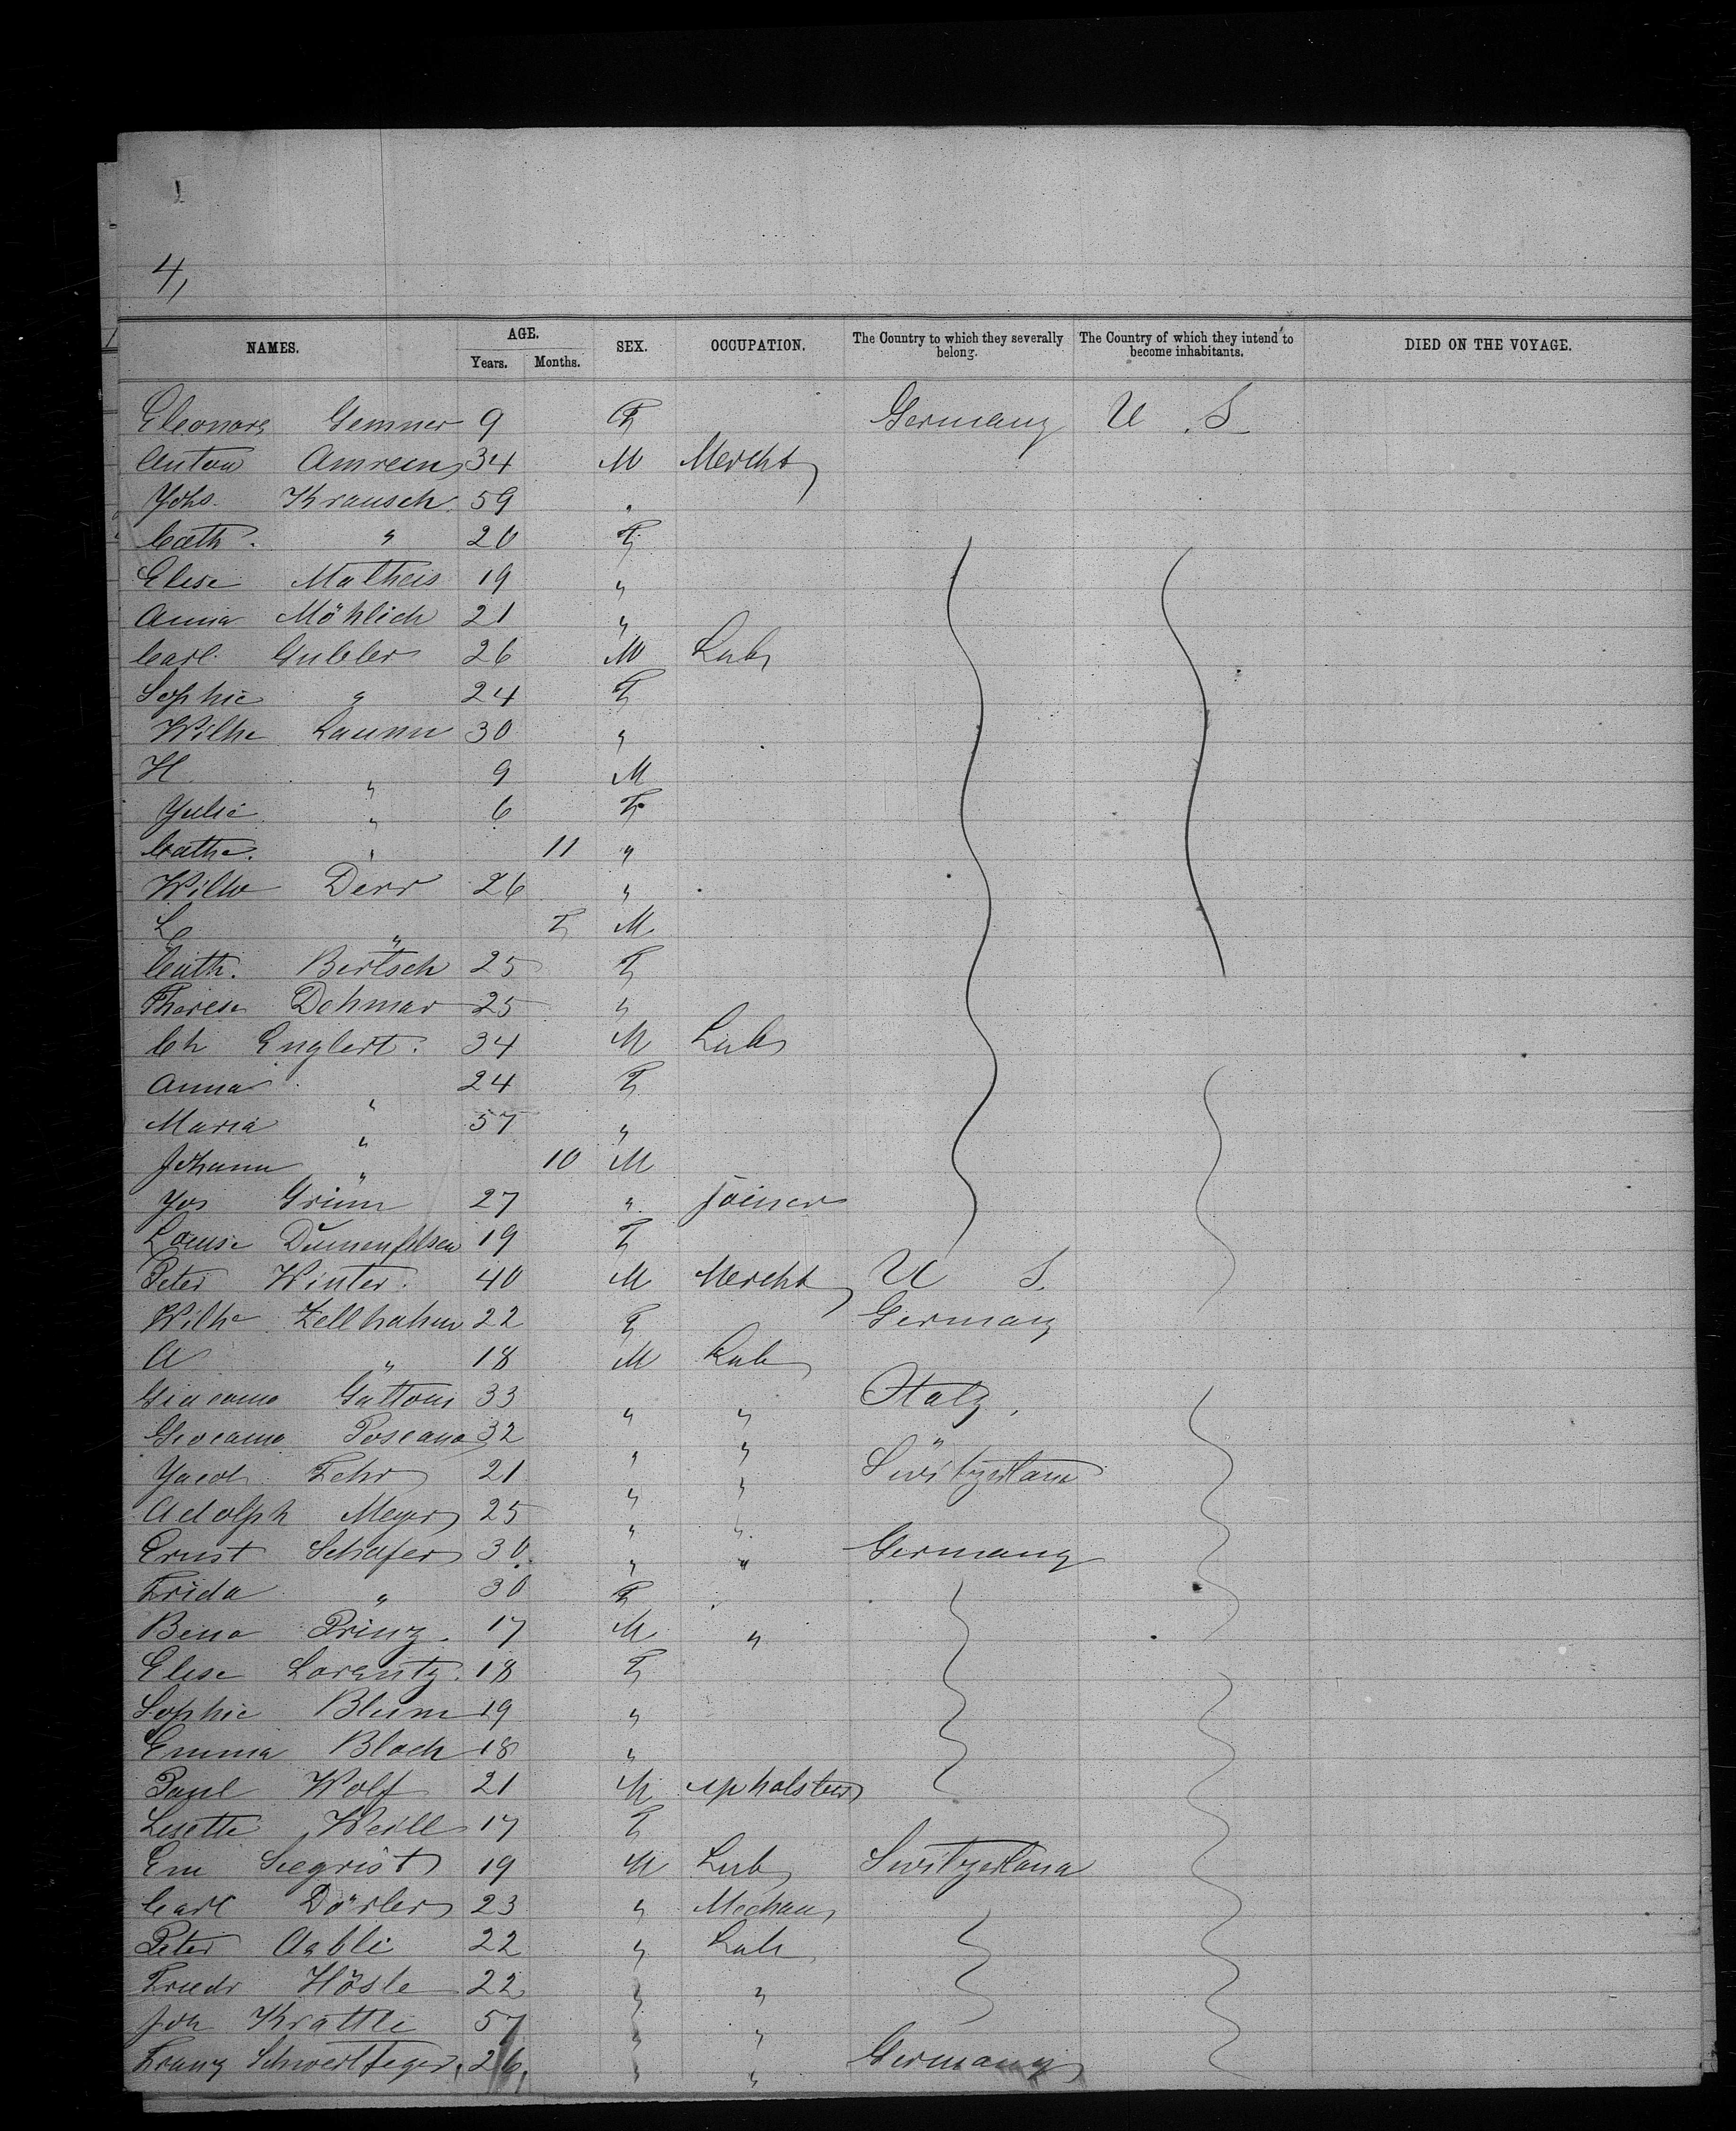 4,
NAMES. AGE. SEX. OCCUPATION. The Country to which they severally belong. The Country of which they intend to become inhabitants. DIED ON THE VOYAGE.
Years. Months.
Eleonore Gemner 9 F Germany U. S.
Anton Amrein 34 M Mercht
Yohs. Krausch 59 "
Cath. " 20 F
Elise Matheis 19 "
Anna Möhlich 21 "
Carl Gubler 26 M Lab
Sophie " 24 F
Wilhe Laumn 30 "
H " 9 M
Yulie " 6 F
Cathe. " 11 "
Wilhe Derr 26 "
L " M
Cath. Bertsch 25 F
Therese Dehmar 25 "
Ch Englert. 34 M Lab
Anna " 24 F
Maria " 57 "
Johann " 10 M
Jos Grimm 27 " joiner
Louise 19 F
Peter Winter. 40 M Mercht U S.
Wilhe Zellhahn 22 F Germany
A " 18 M Lab
Giacomo Gattoni 33 " " Italy.
Giocamo Poscana 32 " " "
Yacob Fehr 21 " " Switzerland
Adolph Meyer 25 " "
Ernst Schafer 30 " " Germany
Frida " 30 F
Beno Prinz. 17 M "
Elise Lorentz. 18 F
Sophie Blum 19 "
Emma Bloch 18 "
Paul Wolf 21 M upholster
Lisette Weill 17 F
Em Siegrist 19 M Lab Switzerland
Carl Dörler 23 " Mechan
Peter Aebli 22 " Lab
Friedr Hösle 22 " "
Joh Krättli 57 " "
Franz Schwertfeger. 26, " " Germany